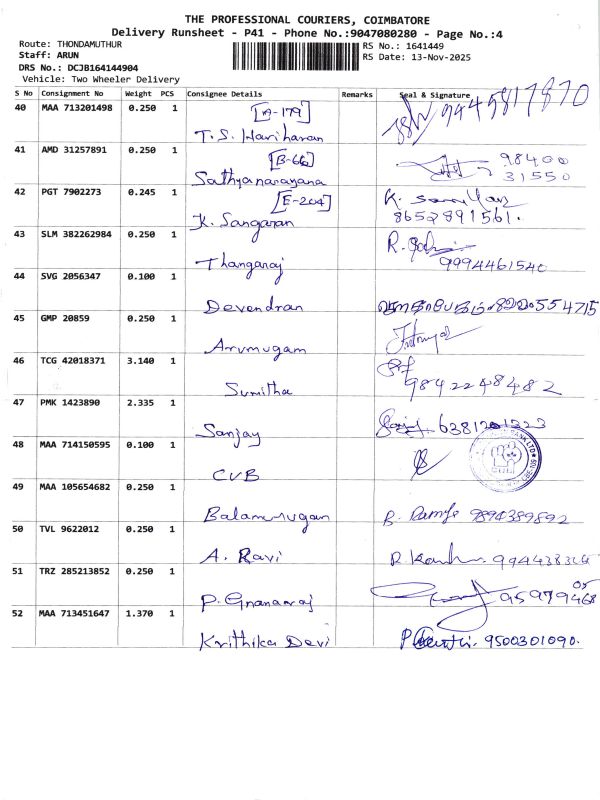 THE PROFESSIONAL COURIERS, COIMBATORE
Delivery Runsheet - P41 - Phone No.:9047080280 - Page No.:4
Route: THONDAMUTHUR RS No.: 1641449
Staff: ARUN RS Date: 13-Nov-2025
DRS No.: DCJB164144904
Vehicle: Two Wheeler Delivery
S No Consignment No Weight PCS Consignee Details Remarks Seal & Signature
40 MAA 713201498 0.250 1 [A-179] 9445817870
T.S. Hariharan
41 AMD 31257891 0.250 1 [B-66] 98400
Sathyanarayana 31550
42 PGT 7902273 0.245 1 [E-204] K.
K. Sangaran 8652891561.
43 SLM 382262984 0.250 1 R.
Thangaraj 9994461540
44 SVG 2056347 0.100 1
Devendran 554715
45 GMP 20859 0.250 1
Arumugam
46 TCG 42018371 3.140 1
Sumitha 9842248482
47 PMK 1423890 2.335 1
Sanjay 6381201323
48 MAA 714150595 0.100 1 BANK LTD
CUB
49 MAA 105654682 0.250 1
Balamurugan B. 9894389892
50 TVL 9622012 0.250 1
A. Ravi 994438364
51 TRZ 285213852 0.250 1 05
P. Gnanaraj 95979468
52 MAA 713451647 1.370 1
Krithika Devi P 9500301090.